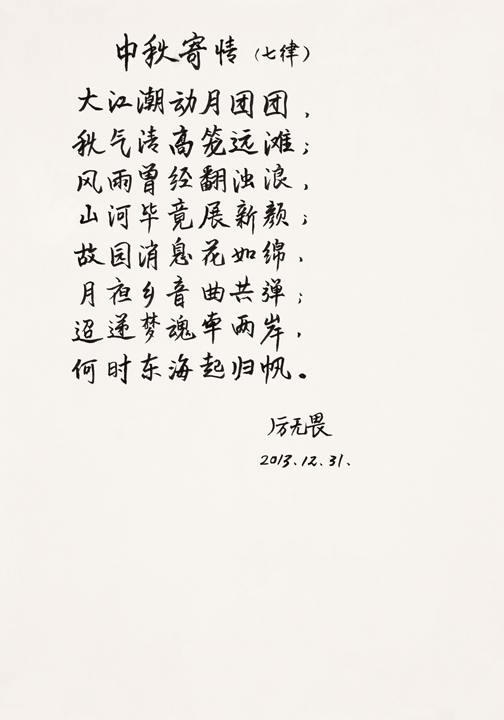 中秋寄情（七律）
大江潮动月团团，
秋气清高笼远滩；
风雨曾经翻浊浪，
山河毕竟展新颜；
故园消息花如绵，
月夜乡音曲共弹；
迢递梦魂牵两岸，
何时东海起归帆。
厉无畏
2013.12.31.